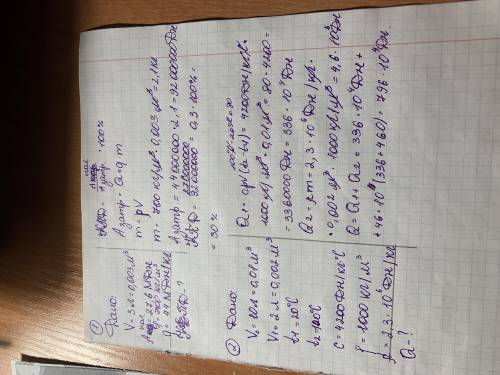 ①
Дано:
V = 3л = 0,003м³
A пол = 27,6 МДж
ρ = 700 кг/м³
q = 44 МДж/кг
КПД - ?
КПД = A пол / A затр. · 100%
A затр. = Q = q m
m = ρV
m = 700 кг/м³ · 0,003 м³ = 2,1 кг
A затр = 44000000 · 2,1 = 92000000 Дж
КПД = 27600000 / 92000000 = 0,3 · 100% =
= 30%
②
Дано:
V₀ = 10л = 0,01м³
V₁ = 2л = 0,002м³
t₁ = 20°C
t₂ = 100°C
C = 4200 Дж/кг·°C
ρ = 1000 кг/м³
= 2.3 · 10⁶ Дж/кг
Q - ?
100°C - 20°C = 80
Q₁ = cρV(t₂-t₁) = 4200 Дж/кг°C ·
1000 кг/м³ · 0,01м³ = 80 · 4200 =
= 3360000 Дж = 336 · 10⁴ Дж
Q₂ = rm = 2,3 · 10⁶ Дж/кг ·
· 0,002 м³ · 1000 кг/м³ = 4,6 · 10⁶ Дж
Q = Q₁ + Q₂ = 336 · 10⁴ Дж +
+ 46 · 10 (336+460) = 796 · 10⁴ Дж